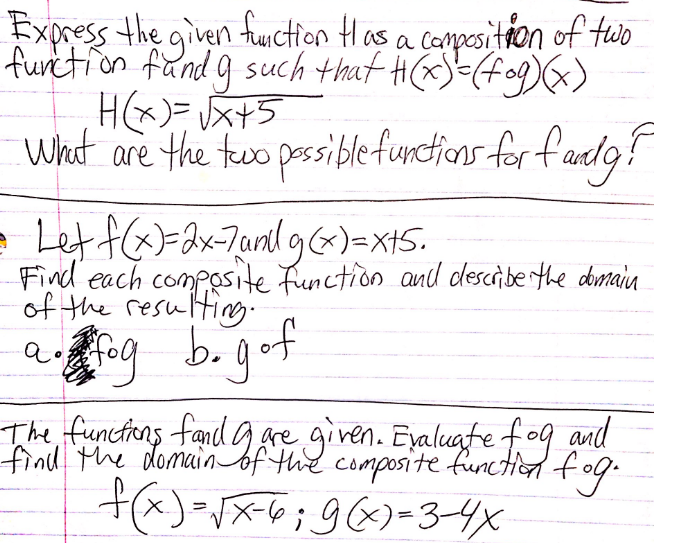 Express the given function H as a composition of two
function f and g such that H(x)=(f∘g)(x)
H(x)=√x+5
What are the two possible functions for f and g?
Let f(x)=2x-7 and g(x)=x+5.
Find each composite function and describe the domain
of the resulting.
a. f∘g b. g∘f
The functions f and g are given. Evaluate f∘g and
find the domain of the composite function f∘g.
f(x)=√x-6; g(x)=3-4x